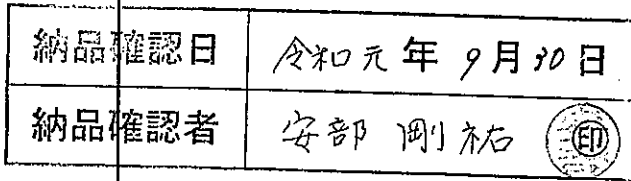 納品確認日 令和元年9月30日
納品確認者 安部 剛祐 ㊞